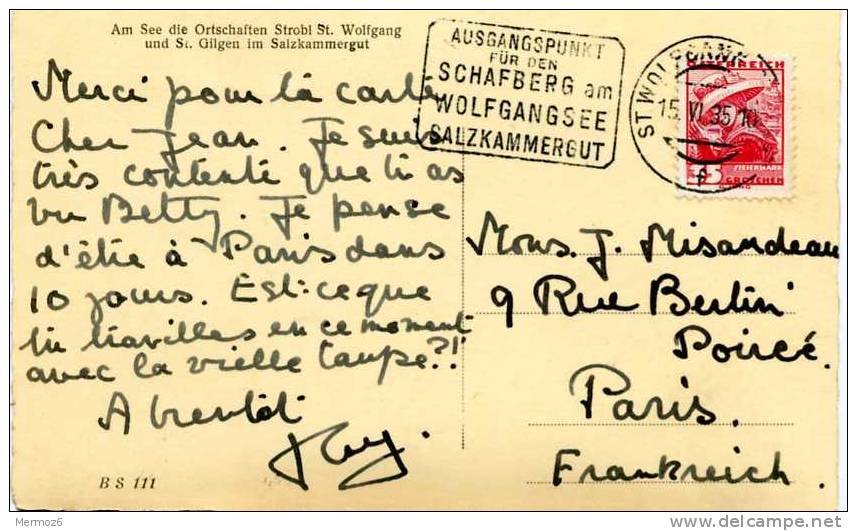 Am See die Ortschaften Strobl St. Wolfgang
und St. Gilgen im Salzkammergut
Merci pour la carte
Cher Jean. Je suis
très contente que tu as
vu Betty. Je pense
d'être à Paris dans
10 jours. Est-ce que
tu travilles en ce moment
avec la vielle taupe?!!
A bientôt
BS 111
AUSGANGSPUNKT
FÜR DEN
SCHAFBERG am
WOLFGANGSEE
SALZKAMMERGUT
ST. WOLFGANG
15.VI.35
ÖSTERREICH
STEIERMARK
GROSCHEN
Mons. J. Misandeau
9 Rue Bertin
Poirée.
Paris.
Frankreich.
Mermoz26
www.delcampe.net